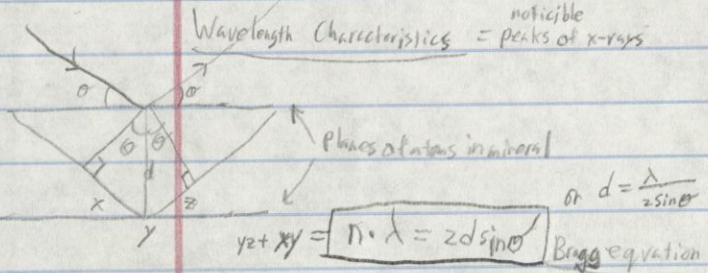 noticible
Wavelength Characteristics = peaks of x-rays
θ θ
θ θ
d
planes of atoms in mineral
x z
y
or d = λ / 2sinθ
yz + xy = n · λ = 2dsinθ
Bragg equation